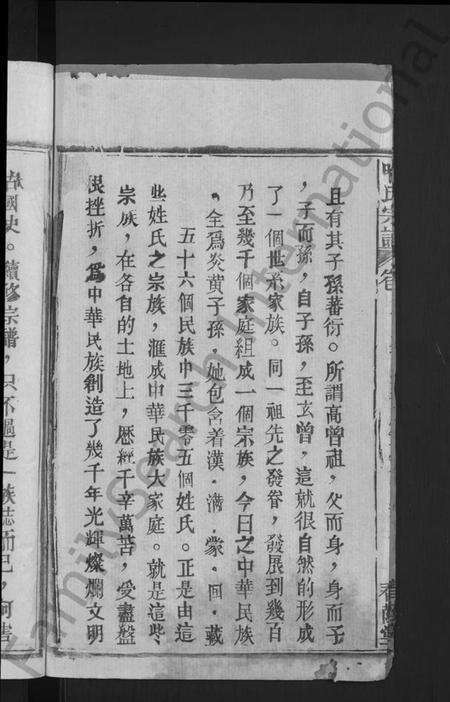 氏宗譜
卷
且有其子孫蕃衍。所謂高曾祖，父而身，身而子
，子而孫，自子孫，至玄曾，這就很自然的形成
了一個世弟家族。同一祖先之發眷，發展到幾百
乃至幾千個家庭組成一個宗族，今日之中華民族
全爲炎黄子孫，她包含着漢．满．蒙．回．藏
五十六個民族中三千零五個姓氏。正是由這
些姓氏之宗族，滙成中華民族大家庭。就是這些
宗族，在各自的土地上，歷經千辛萬苦，受盡盤
挫折，爲中華民族創造了幾千年光輝燦爛文明
國史。續修宗譜，只不過是一族誌而已，何
FamilySearch International